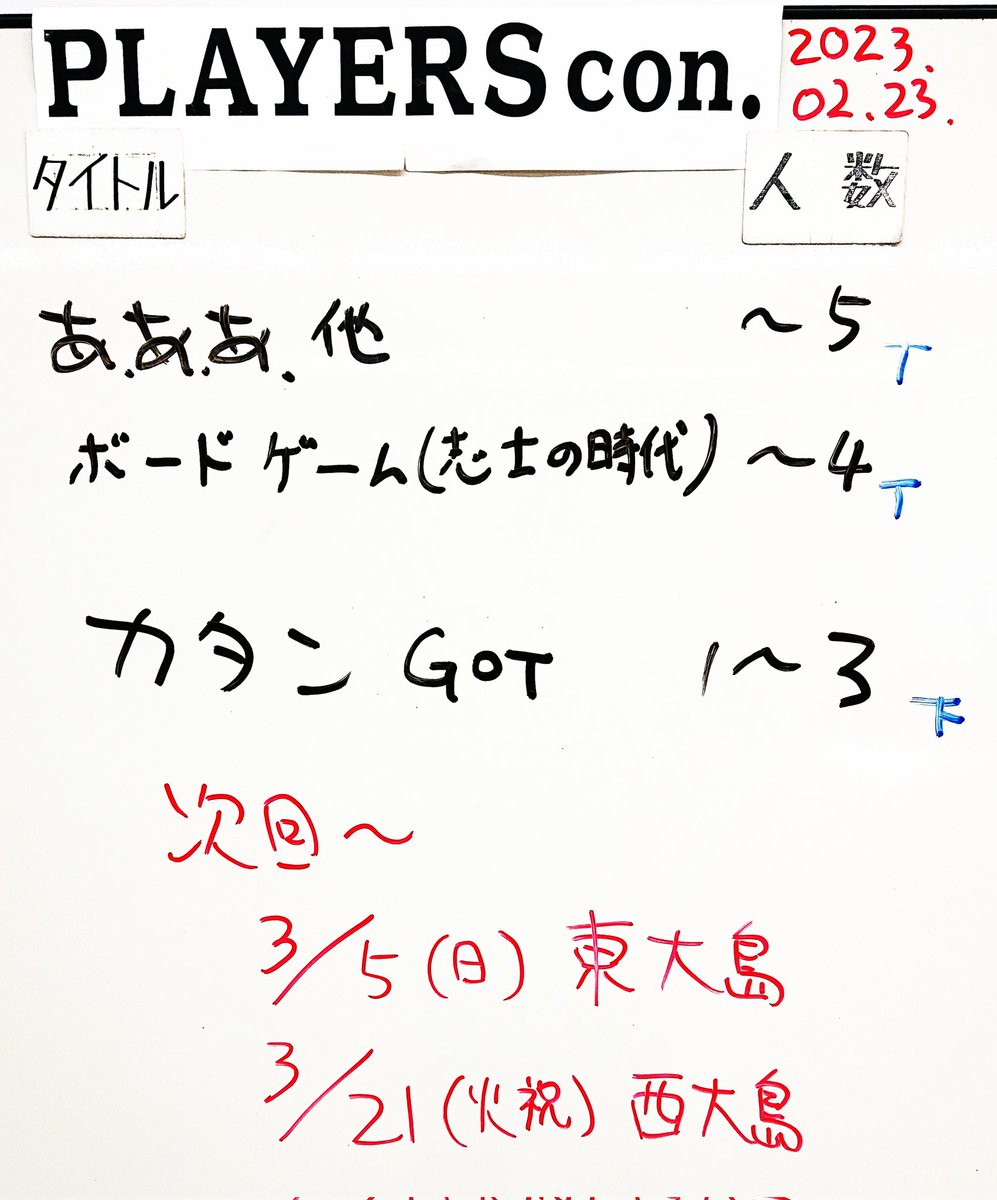 PLAYERS con.
2023.
02.23.
タイトル
人数
あ.あぁ.あ. 他 ～5 T
ボードゲーム(志士の時代) ～4 T
カタン GOT 1～3 下
次回～
3/5(日) 東大島
3/21(火祝) 西大島